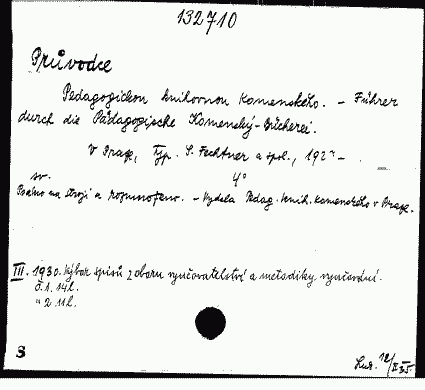 132710
Průvodce
Pedagogickou knihovnou Komenského. - Führer
durch die Pädagogische Komenský-Bücherei.
V Praze, Typ. S. Fechtner a spol., 192 -
sv. 4°
Psáno na stroji a rozmnoženo. - Vydala Pedag. knih. Komenského v Praze.
III. 1930. Výbor spisů z oboru vyučovatelství a metodiky vyučování.
č. 1. 14 l.
" 2 11 l.
S
12/II 35